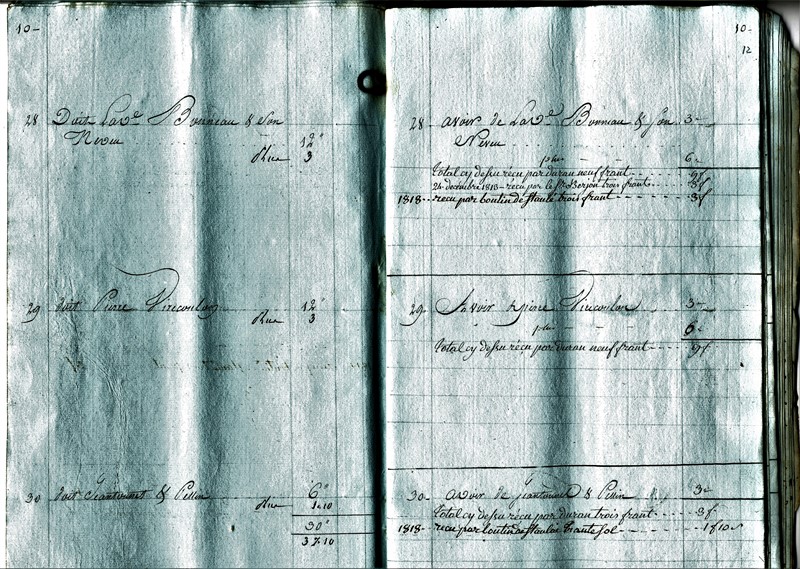 10-
28 Doit La Ve Bonneau & son
Neveu 12"
Plus 3
29 doit Pierre Virecoulon 12"
Plus 3
30 doit Jeantounet & Pellin 6"
Plus 1.10
30"
37.10
10-
12
28 avoir de La Ve Bonneau & Son 3-
Neveu
plus 6-
Total cy desu récu par duran neuf frant 9f
24 decembre 1818 - récu par le Sr Berjon trois frant 3f
1818 recu par boutin de Haulé trois frant 3f
29 Avoir de pierre Virecoulon 3-
plus 6-
Total cy desu récu par duran neuf frant 9f
30 avoir de Jeantounet & Pellin 3-
Total cy desu récu par duran trois frant 3f
1818 recu par boutin de Haulé trante sol 1f10s